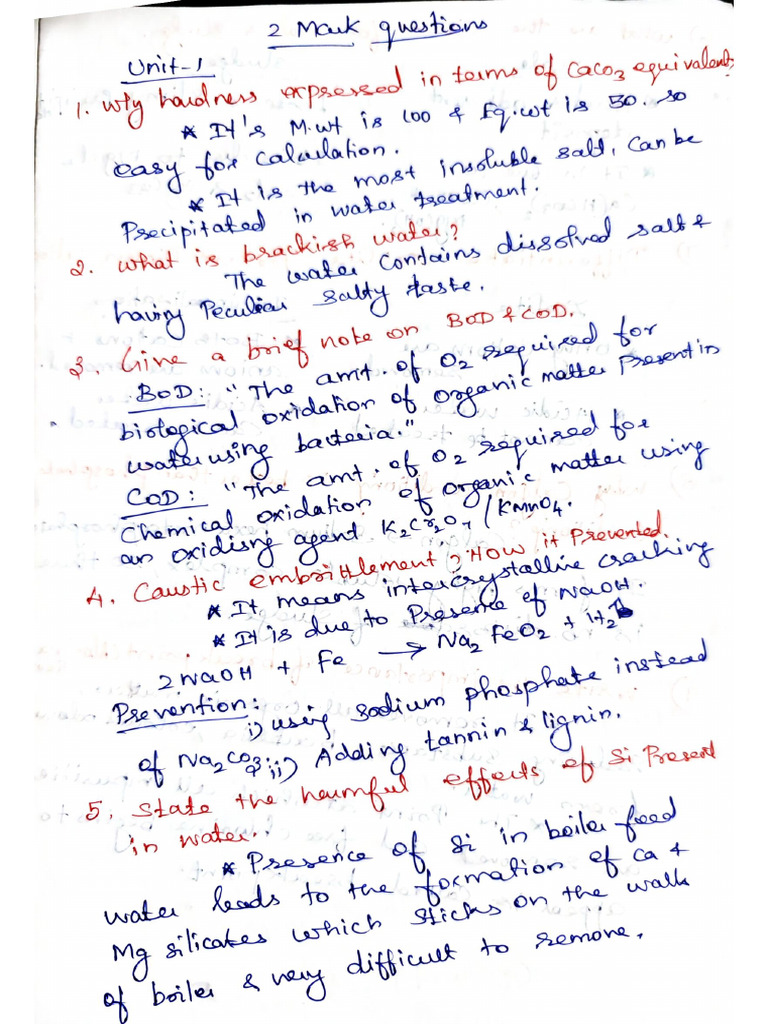 2 Mark questions
Unit-1
1. Why hardness expressed in terms of CaCO3 equivalent.
* It's M.wt is 100 & Eq.wt is 50. so
easy for calculation.
* It is the most insoluble salt, can be
Precipitated in water treatment.
2. What is brackish water?
The water contains dissolved salt &
having Peculiar salty taste.
3 Give a brief note on BOD & COD.
BOD: "The amt. of O2 required for
biological oxidation of organic matter Present in
water using bacteria."
COD: "The amt. of O2 required for
Chemical oxidation of organic matter using
an oxidisng agent K2Cr2O7 / KMnO4.
4. Caustic embrittlement? How it Prevented.
* It means intercrystalline cracking
* It is due to Presence of NaOH.
2 NaOH + Fe → Na2 FeO2 + H2↑
Prevention:
i) using sodium phosphate instead
of Na2CO3 ii) Adding tannin & lignin.
5. State the harmful effects of Si Present
in water.
* Presence of Si in boiler feed
water leads to the formation of Ca &
Mg silicates which sticks on the walls
of boiler & very difficult to remove.